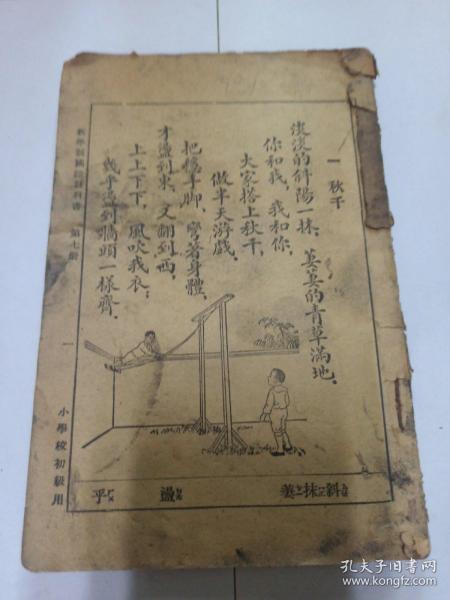 一 秋千
淡淡的斜陽一抹，萋萋的青草滿地．
你和我，我和你，
大家搭上秋千，
做半天游戲．
把穩手脚，彎著身體，
才盪到東，又翻到西，
上上下下，風吹我衣；
幾乎盪到牆頭一樣齊．
斜 抹 萋
盪
乎
新學制國語教科書 第七册
一
小學校初級用
孔夫子旧书网
www.kongfz.com